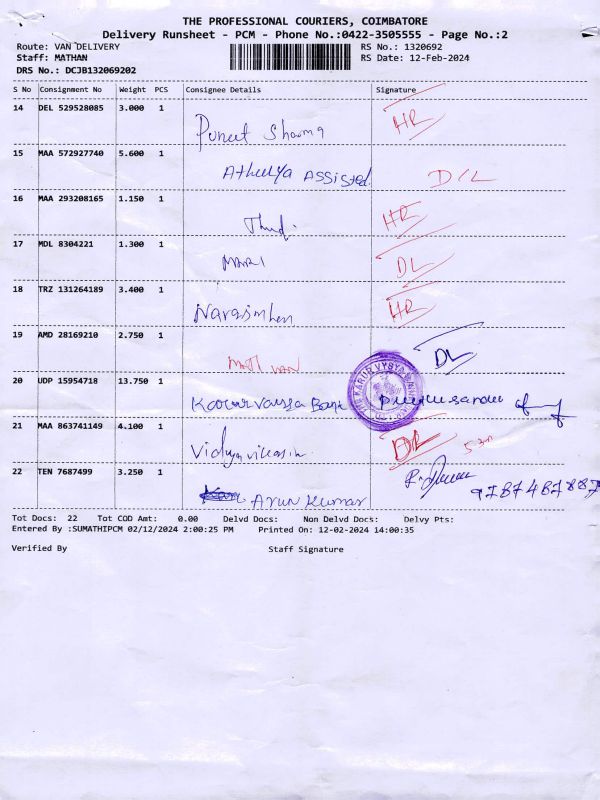 THE PROFESSIONAL COURIERS, COIMBATORE
Delivery Runsheet - PCM - Phone No.:0422-3505555 - Page No.:2
Route: VAN DELIVERY RS No.: 1320692
Staff: MATHAN RS Date: 12-Feb-2024
DRS No.: DCJB132069202
S No Consignment No Weight PCS Consignee Details Signature
14 DEL 529528085 3.000 1
Puneet Sharma HR
15 MAA 572927740 5.600 1
Atheeya Assisted D/L
16 MAA 293208165 1.150 1
HR
17 MDL 8304221 1.300 1
MARI DL
18 TRZ 131264189 3.400 1
Narasimhan HR
19 AMD 28169210 2.750 1
DL
20 UDP 15954718 13.750 1
Karur Vaysya Bank
KARUR VYSYA BANK
21 MAA 863741149 4.100 1
5.30
22 TEN 7687499 3.250 1
Arun Kumar
Tot Docs: 22 Tot COD Amt: 0.00 Delvd Docs: Non Delvd Docs: Delvy Pts:
Entered By :SUMATHIPCM 02/12/2024 2:00:25 PM Printed On: 12-02-2024 14:00:35
Verified By Staff Signature